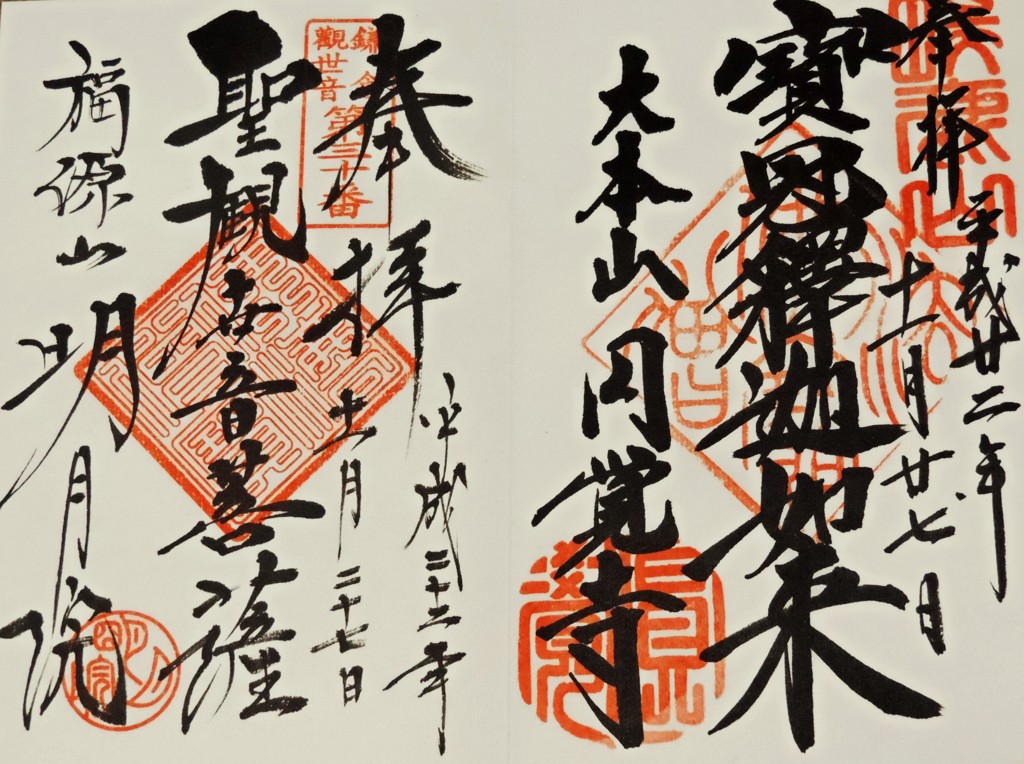 奉拝
平成廿二年
十一月廿七日
寶冠釋迦如来
大本山
円覚寺
奉拝
平成二十二年
十一月二十七日
鎌倉
觀世音
第三十番
聖観世音菩薩
福源山
明月院